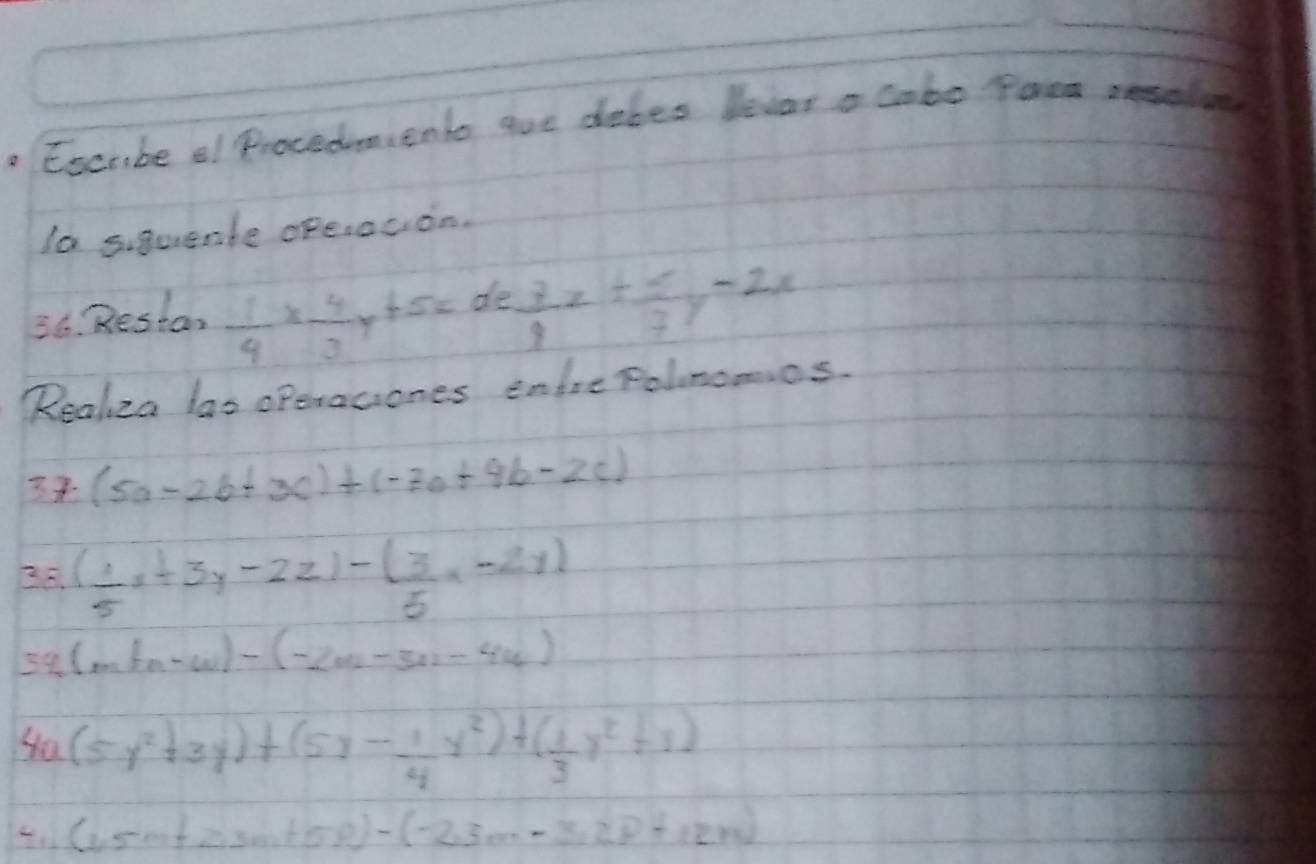 • Escribe el Procedimiento que debes llevar a cabo Para resolver
la siguiente operación.
36. Restar 1/4 x 4/3 y + 5z de 7/9 z + 5/7 y - 2x
Realiza las operaciones entre Polinomios.
37. (5a - 2b + 3c) + (-7a + 9b - 2c)
38. (1/5 x + 3y - 2z) - (3/5 x - 2y)
39. (m + n - w) - (-2m - 3n - 4w)
40. (5y² + 3y) + (5y - 1/4 y²) + (1/3 y² + y)
41. (1.5m + 2.3n + 5p) - (-2.3m - 3.2p + 1.2n)